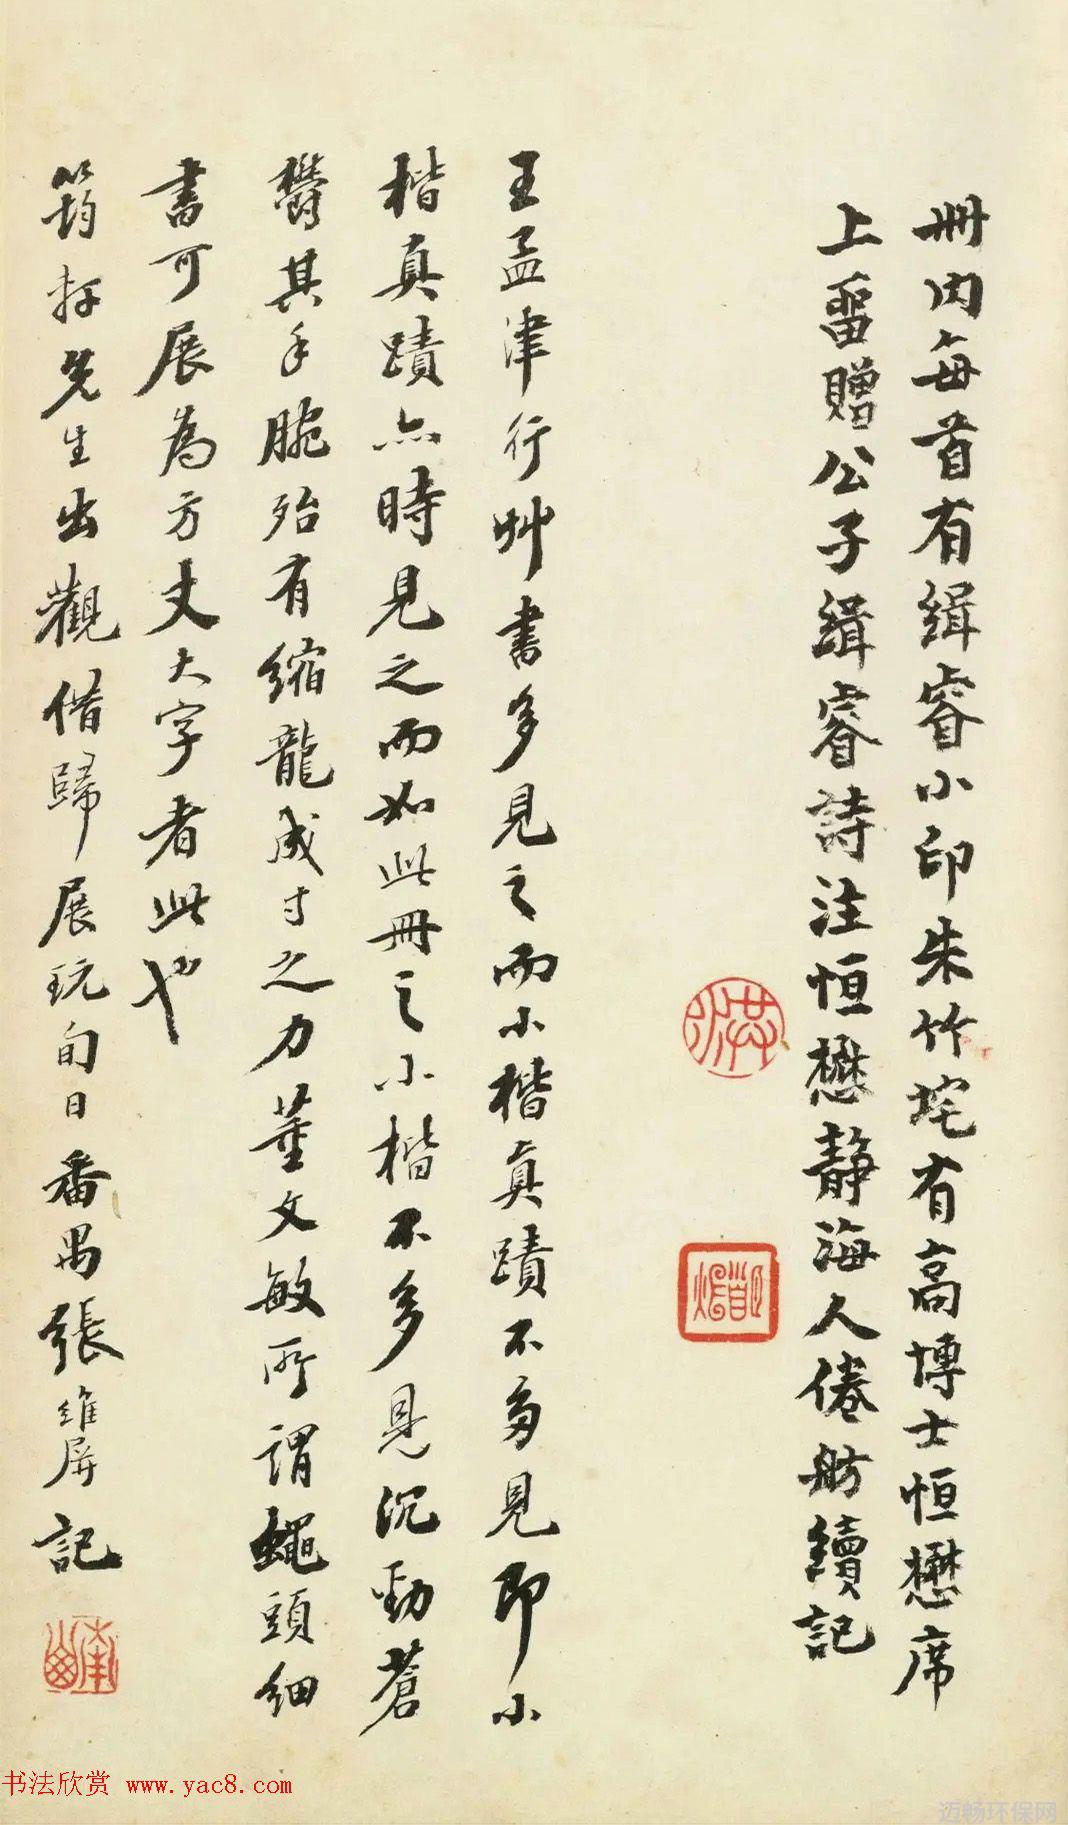 冊内每首有緝睿小印朱竹垞有高博士恒懋席
上畱贈公子緝睿詩注恒懋靜海人倦舫續記
王孟津行艸書多見之而小楷真蹟不多見即小
楷真蹟亦時見之而如此冊之小楷不多見沉勁蒼
鬱其手腕殆有縮龍成寸之力董文敏所謂蠅頭細
書可展為方丈大字者此也
筠打先生出觀借歸展玩旬日番禺張維屏記
洪
南山
书法欣赏 www.yac8.com
迈畅环保网